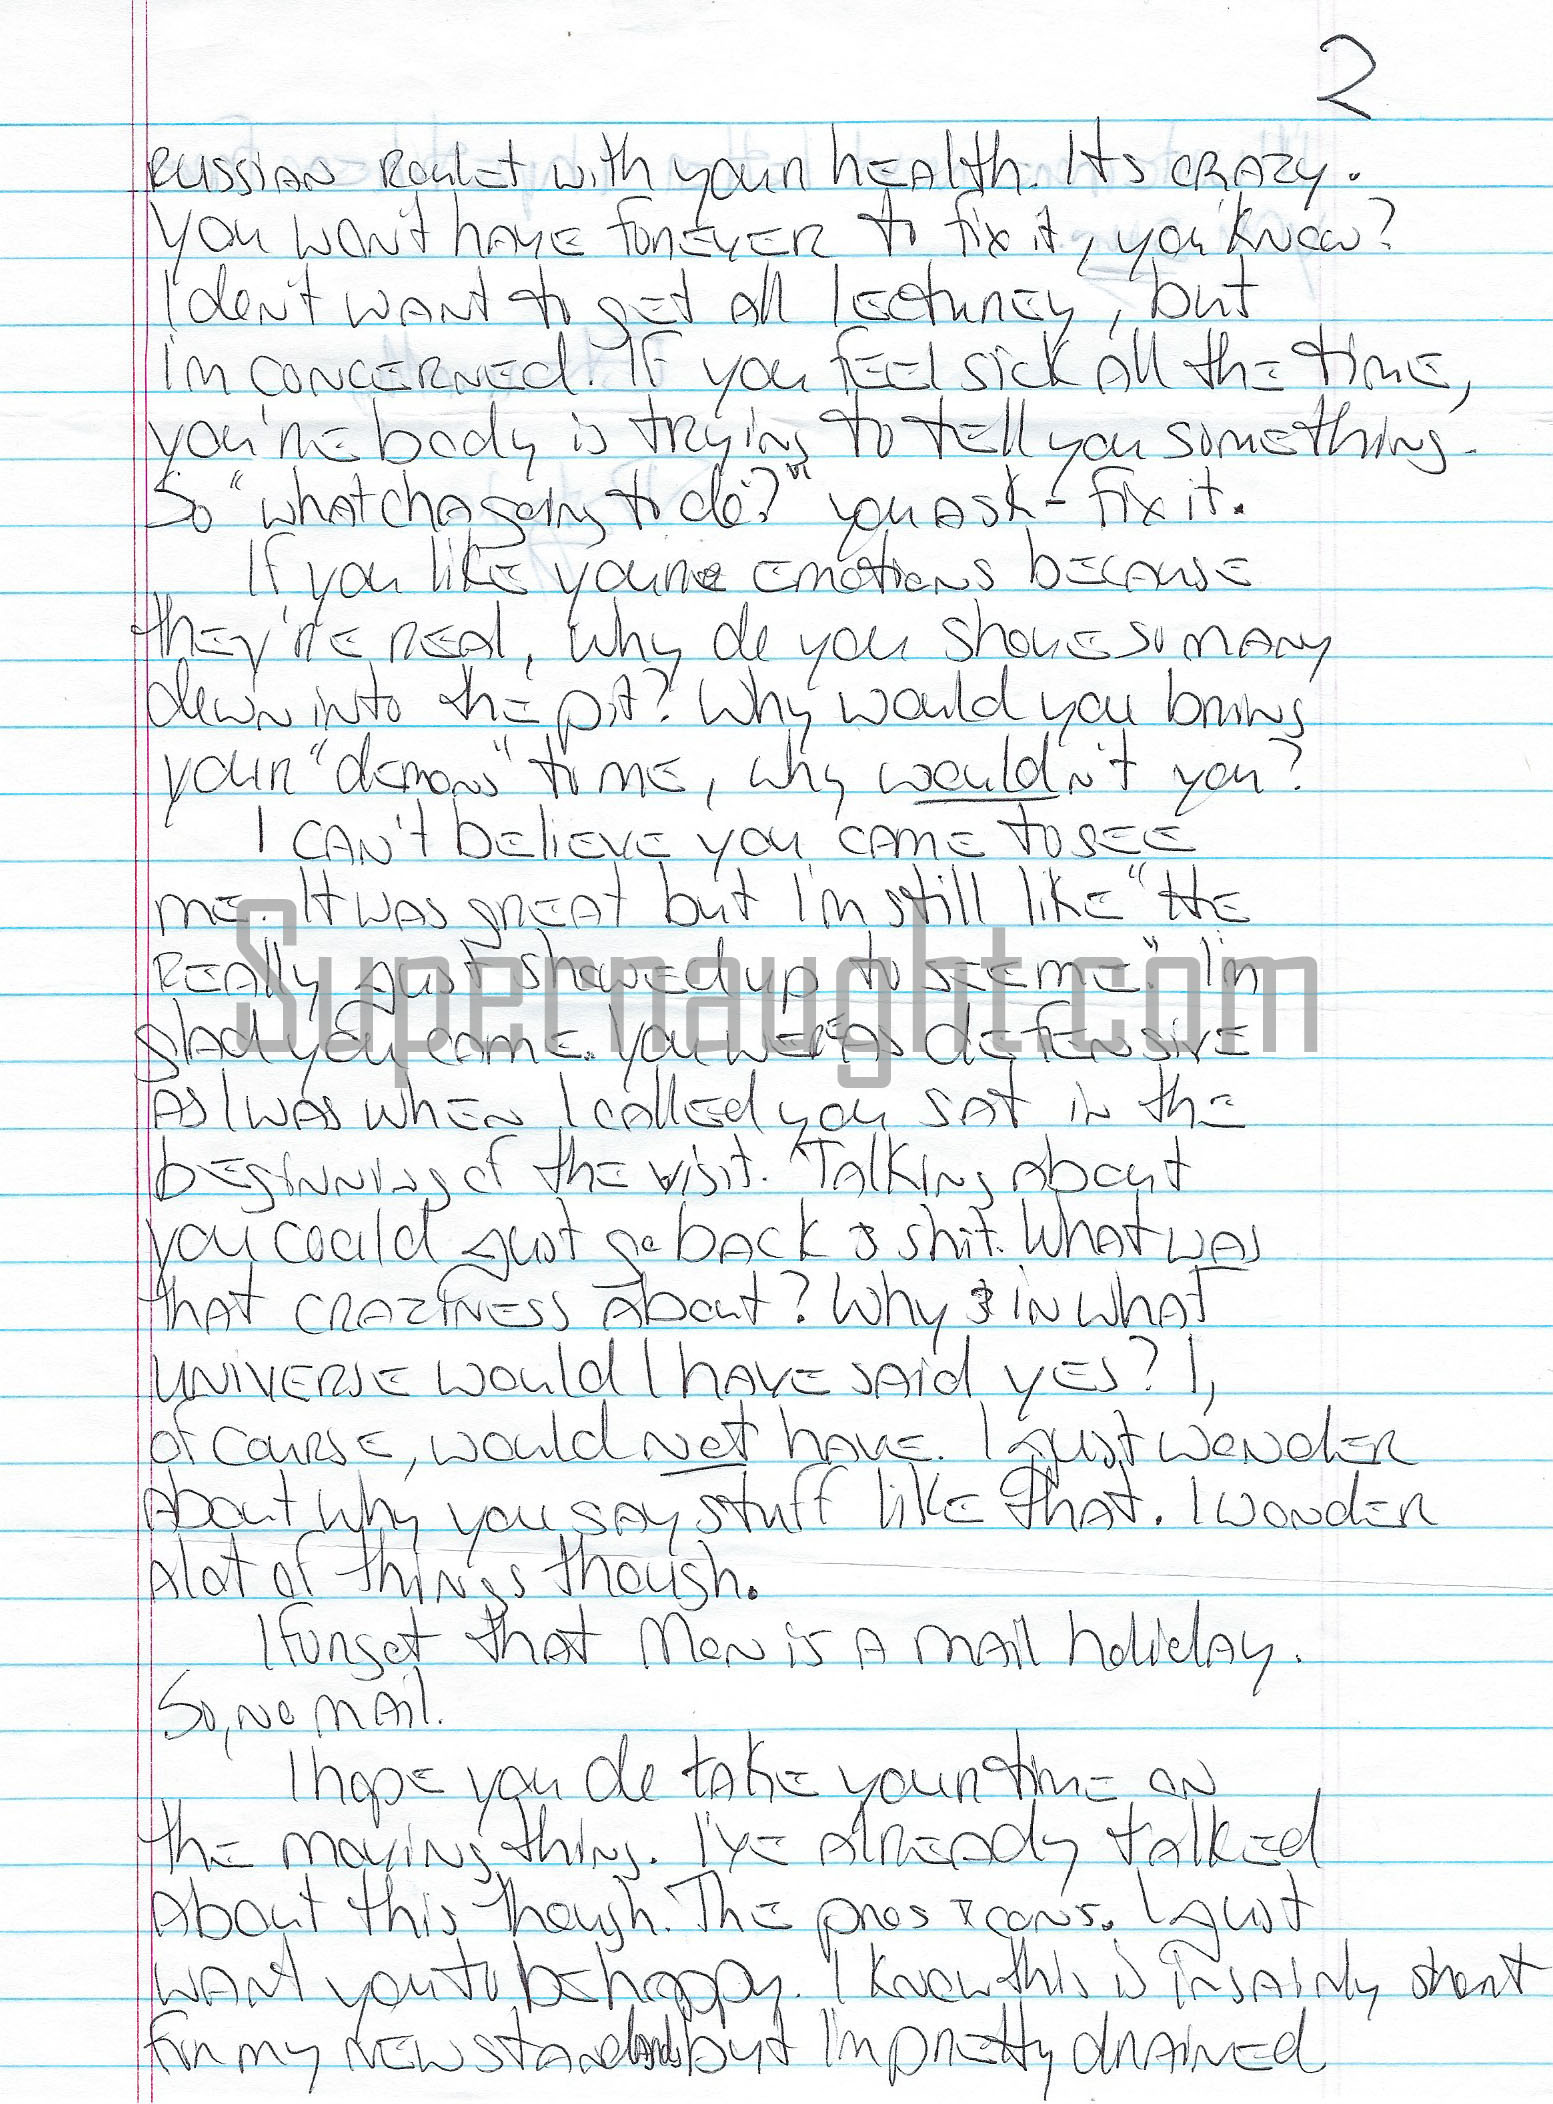 2
Russian Roulet with your health. Its crazy.
You won't have forever to fix it, you know?
I don't want to get all lecturey, but
I'm concerned. If you feel sick all the time,
you're body is trying to tell you something.
So "whatcha going to do?" you ask - fix it.
If you like your emotions because
they're real, why do you shove so many
down into the pit? Why would you bring
your "demons" to me, why wouldn't you?
I can't believe you came to see
me. It was great but I'm still like "He
really just showed up to see me." I'm
glad you came. You were as defensive
as I was when I called you sat in the
beginning of the visit. Talking about
you could just go back & shit. What was
that craziness about? Why & in what
universe would I have said yes? I,
of course, would not have. I just wonder
about why you say stuff like that. I wonder
alot of things though.
I forget that Mon is a mail holiday.
So, no mail.
I hope you do take your time on
the moving thing. I've already talked
about this though. The pros & cons. I just
want you to be happy. I know this is insainly short
for my new standards but I'm pretty drained
Supernaught.com